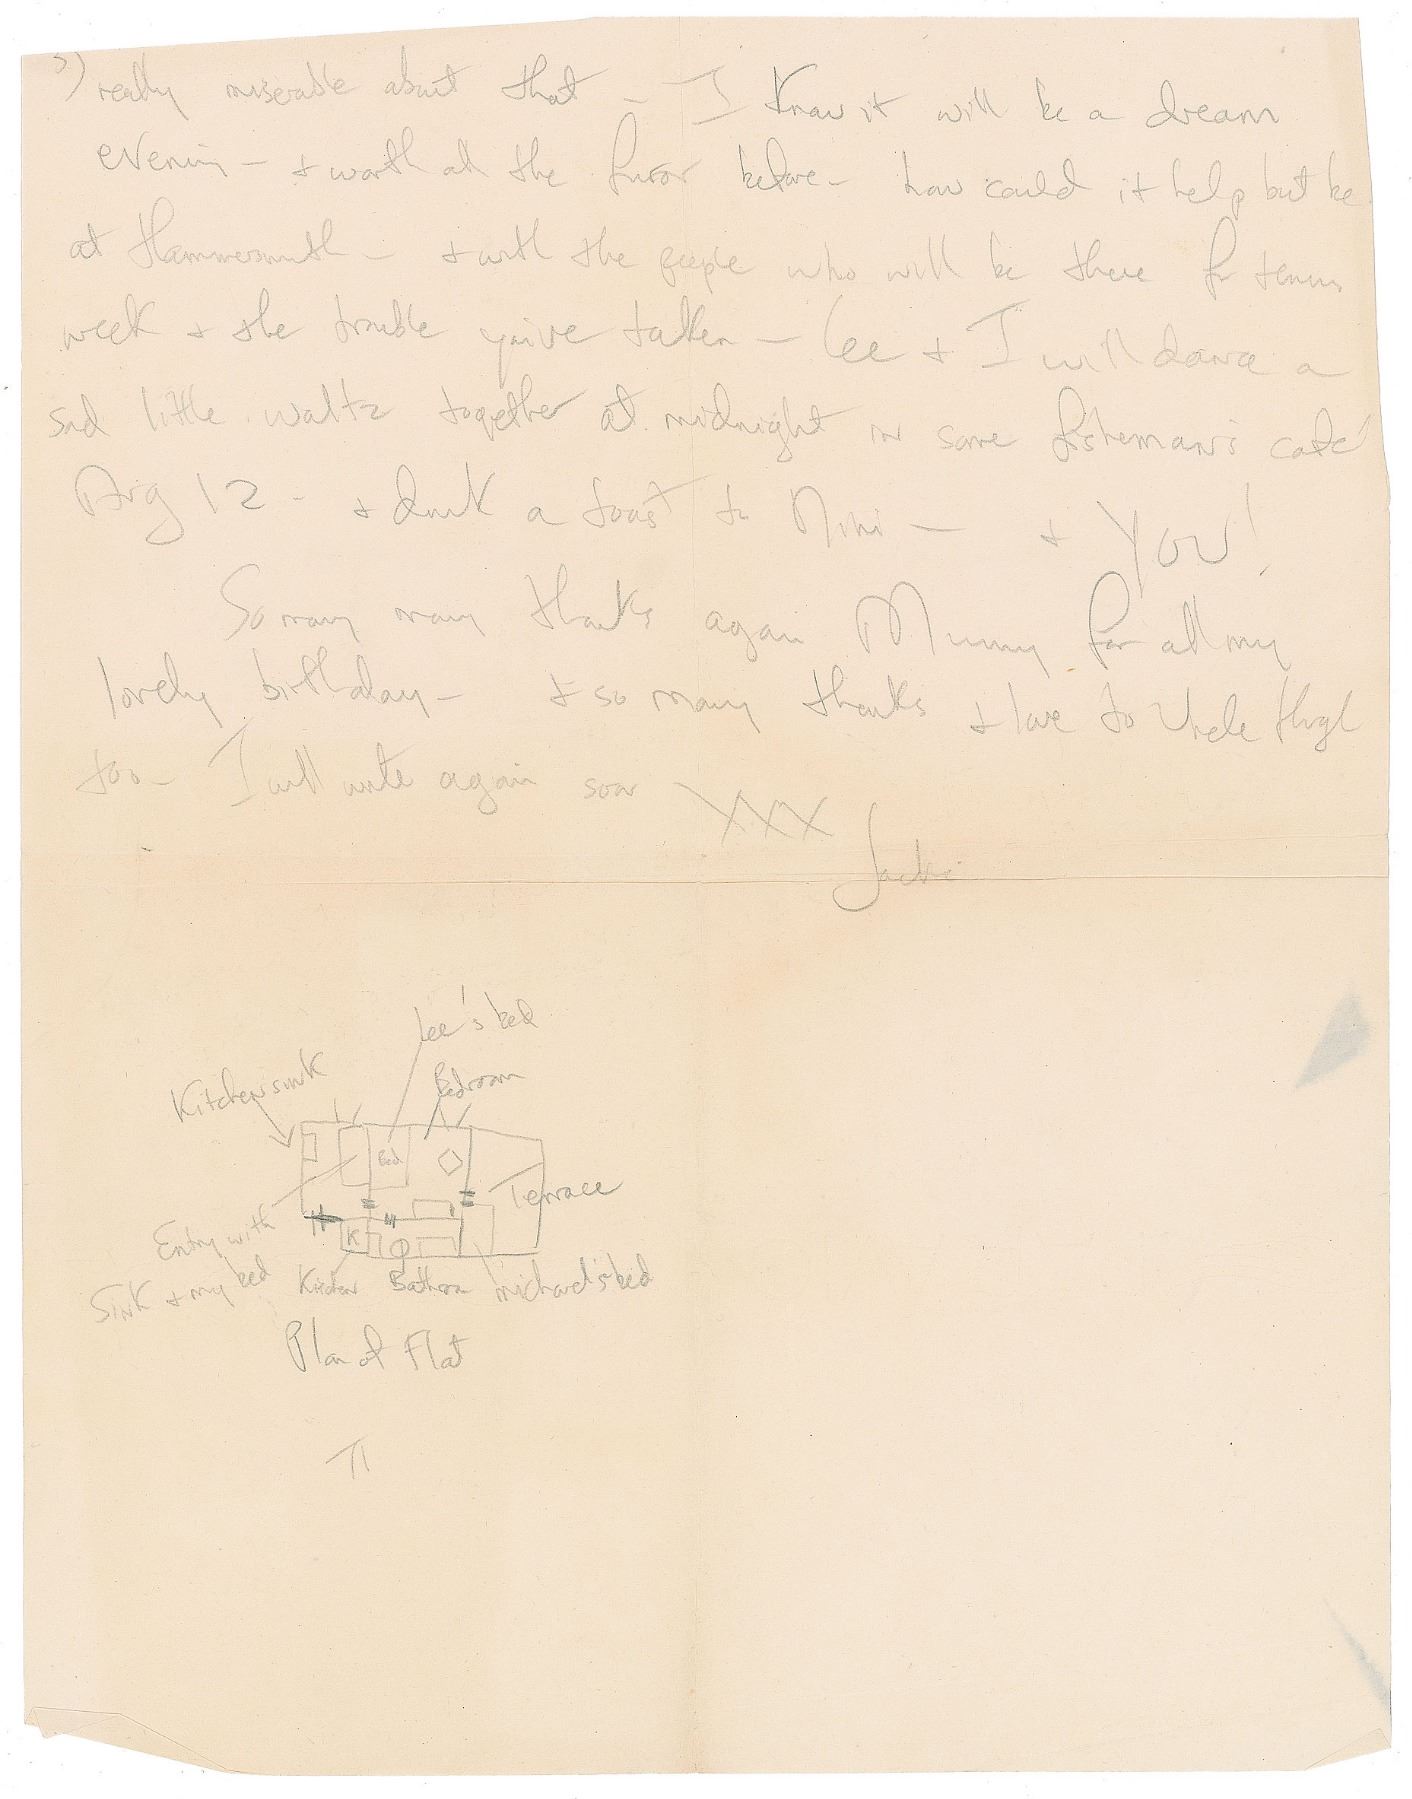 3) really miserable about that – I know it will be a dream
evening – + worth all the furor before – how could it help but be
at Hammersmith – + with the people who will be there for tennis
week + the trouble you've taken – Lee + I will dance a
sad little waltz together at midnight in some fisherman's café
Aug 12 – + drink a toast to Nini – + YOU!
So many many thanks again Mummy for all my
lovely birthday – + so many thanks + love to Uncle Hugh
too – I will write again soon XXX
Jackie
Lee's bed
Kitchen sink
Bedroom
Bed
Terrace
Entry with
Sink + my bed
K
Kitchen
Bathroom
Michael's bed
Plan of Flat